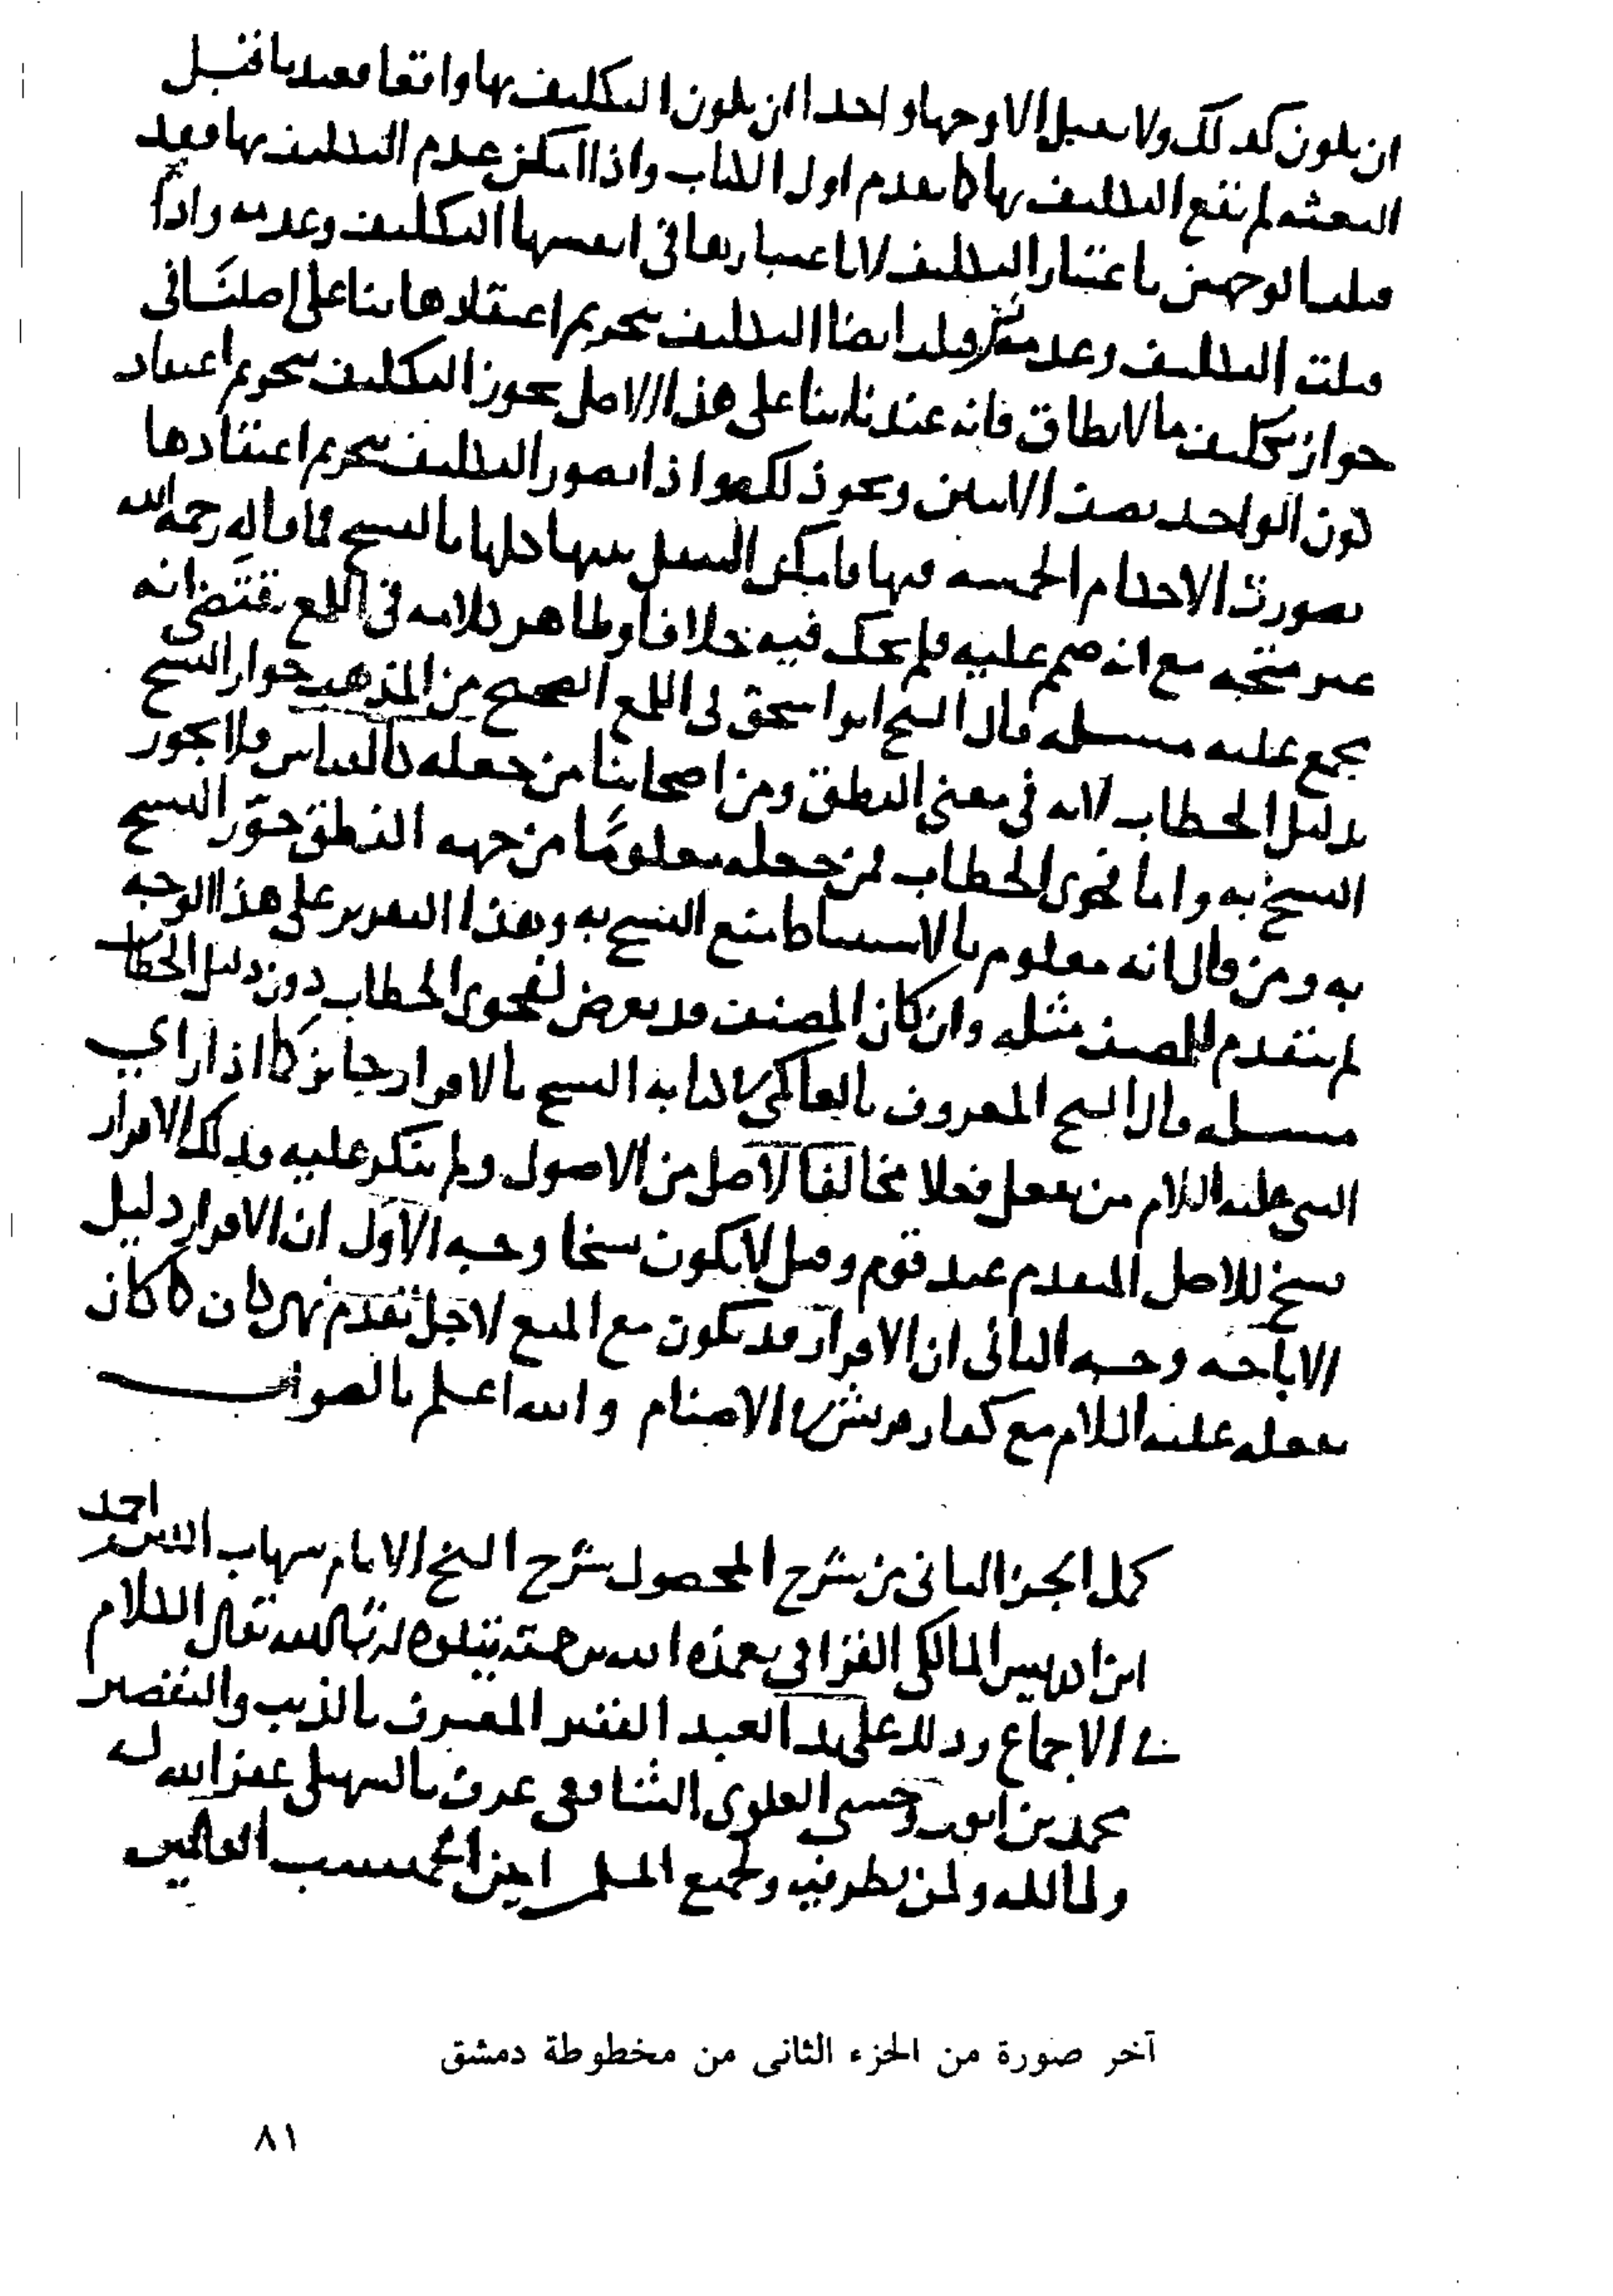 ان يكون كذلك ولا يقبل الا وجها واحدا ان يكون التكليف بها واقعا فعندنا قبل
البعثه لم يقع التكليف بها كما تقدم اول الكتاب واذا امكن عدم التكليف بها فقد
قبلت الوجهين باعتبار التكليف لا باعتبارها في انفسها التكليف وعدمه واذا
قبلت التكليف وعدمه قبلت ايضا التكليف بتحريم اعتقادها بنا على اصلنا في
جواز تكليف ما لا يطاق فانه عندنا بنا على هذا الاصل يجوز التكليف بتحريم اعتقاد
كون الواحد نصف الاثنين ونحو ذلك واذا تصور التكليف بتحريم اعتقادها
تصورت الاحكام الخمسه فيها فامكن النقل بينها كلها بالنسخ فما قاله رحمه الله
غير متجه مع انه صمم عليه فلم يحك فيه خلافا وظاهر كلامه في اللمع يقتضي انه
مجمع عليه مسله قال الشيخ ابو اسحق في اللمع الصحيح من المذهب جواز النسخ
بدليل الخطاب لانه في معنى النطق ومن اصحابنا من جعله كالقياس فلا يجوز
النسخ به واما فحوى الخطاب فمن جعله معلوما من جهه النطق جوز النسخ
به ومن قال انه معلوم بالاستنباط منع النسخ به وهذا التقرير على هذا الوجه
لم يتقدم للمصنف مثله وان كان المصنف قد تعرض لفحوى الخطاب دون دليل الخطاب
مسله قال الشيخ المعروف بالعالمي في كتابه النسخ بالاقرار جائز كما اذا راى
النبي عليه السلام من يفعل فعلا مخالفا لاصل من الاصول ولم ينكر عليه فذلك الاقرار
نسخ للاصل المتقدم عند قوم وقيل لا يكون نسخا وجه الاول ان الاقرار دليل
الاباحه وجه الثاني ان الاقرار قد يكون مع المنع لاجل تقدم نهي كان كما كان
يفعله عليه السلام مع كفار قريش في الاصنام والله اعلم بالصواب
كمل الجز الثاني من شرح المحصول شرح الشيخ الامام شهاب الدين احمد
ابن ادريس المالكي القرافي تغمده الله برحمته يتلوه ان شا الله تعالى الكلام
في الاجماع وذلك على يد العبد الفقير المعترف بالذنب والتقصير
محمد بن ايوب العلوي الشافعي عرف بالسهيلي غفر الله له
ولمالكه ولمن نظر فيه ولجميع المسلمين امين العالمين
آخر صورة من الجزء الثانى من مخطوطة دمشق
٨١